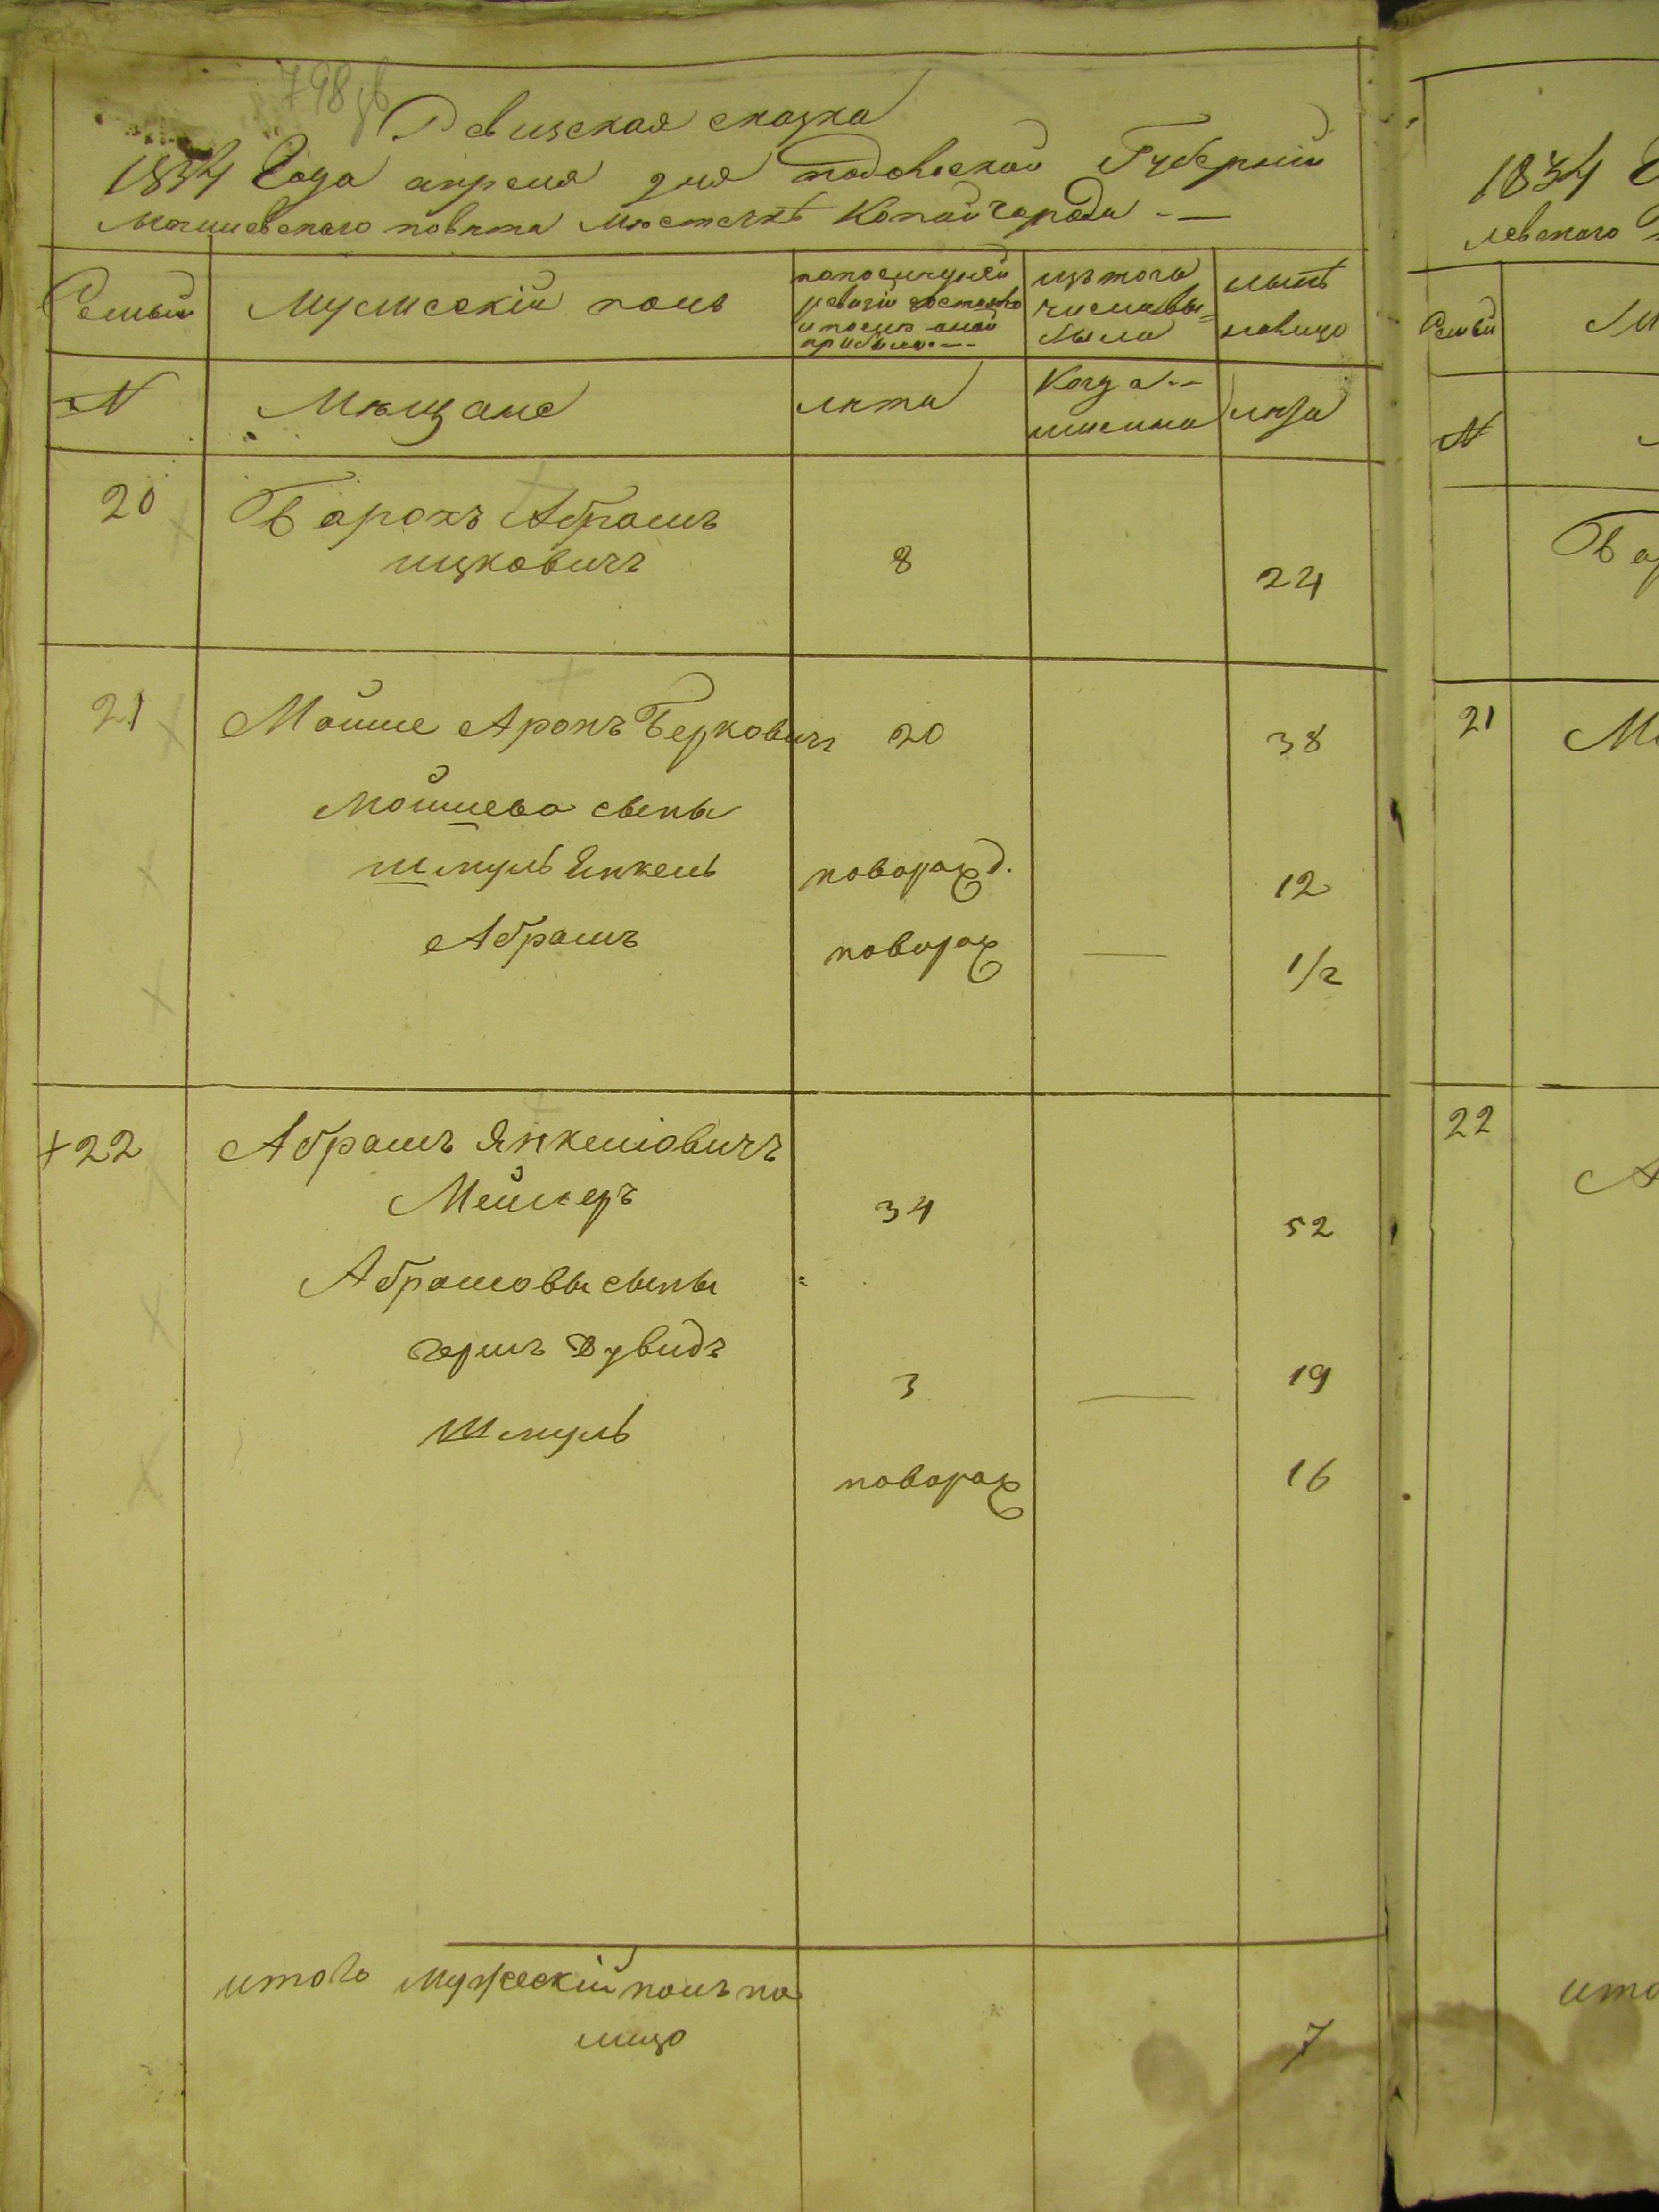 798 об
Ревизская сказка
1834 Года апреля дня подольской Губернии
могилевского повята местечкѣ Копайгорода
Семьи
Мужескій полъ
по последней ревизіи состояло и после оной прибыло
изъ того числа выбыло
нынѣ налицо
N
Мѣщане
лѣта
Когда именно
лѣта
20
Барохъ Абрамъ
ицковичъ
8
24
21
Мойше Аронъ Берковичъ
20
38
Мойшева сыны
шмуль Янкель
новорожд.
12
Абрамъ
новорож
1/2
22
Абрамъ Янкеліовичъ
Мейлеръ
34
52
Абрамовы сыны
гершъ Дувидъ
3
19
Шмуль
новорож
16
итого мужескій полъ на
лицо
7
1834
левского
Семьи
N
21
22